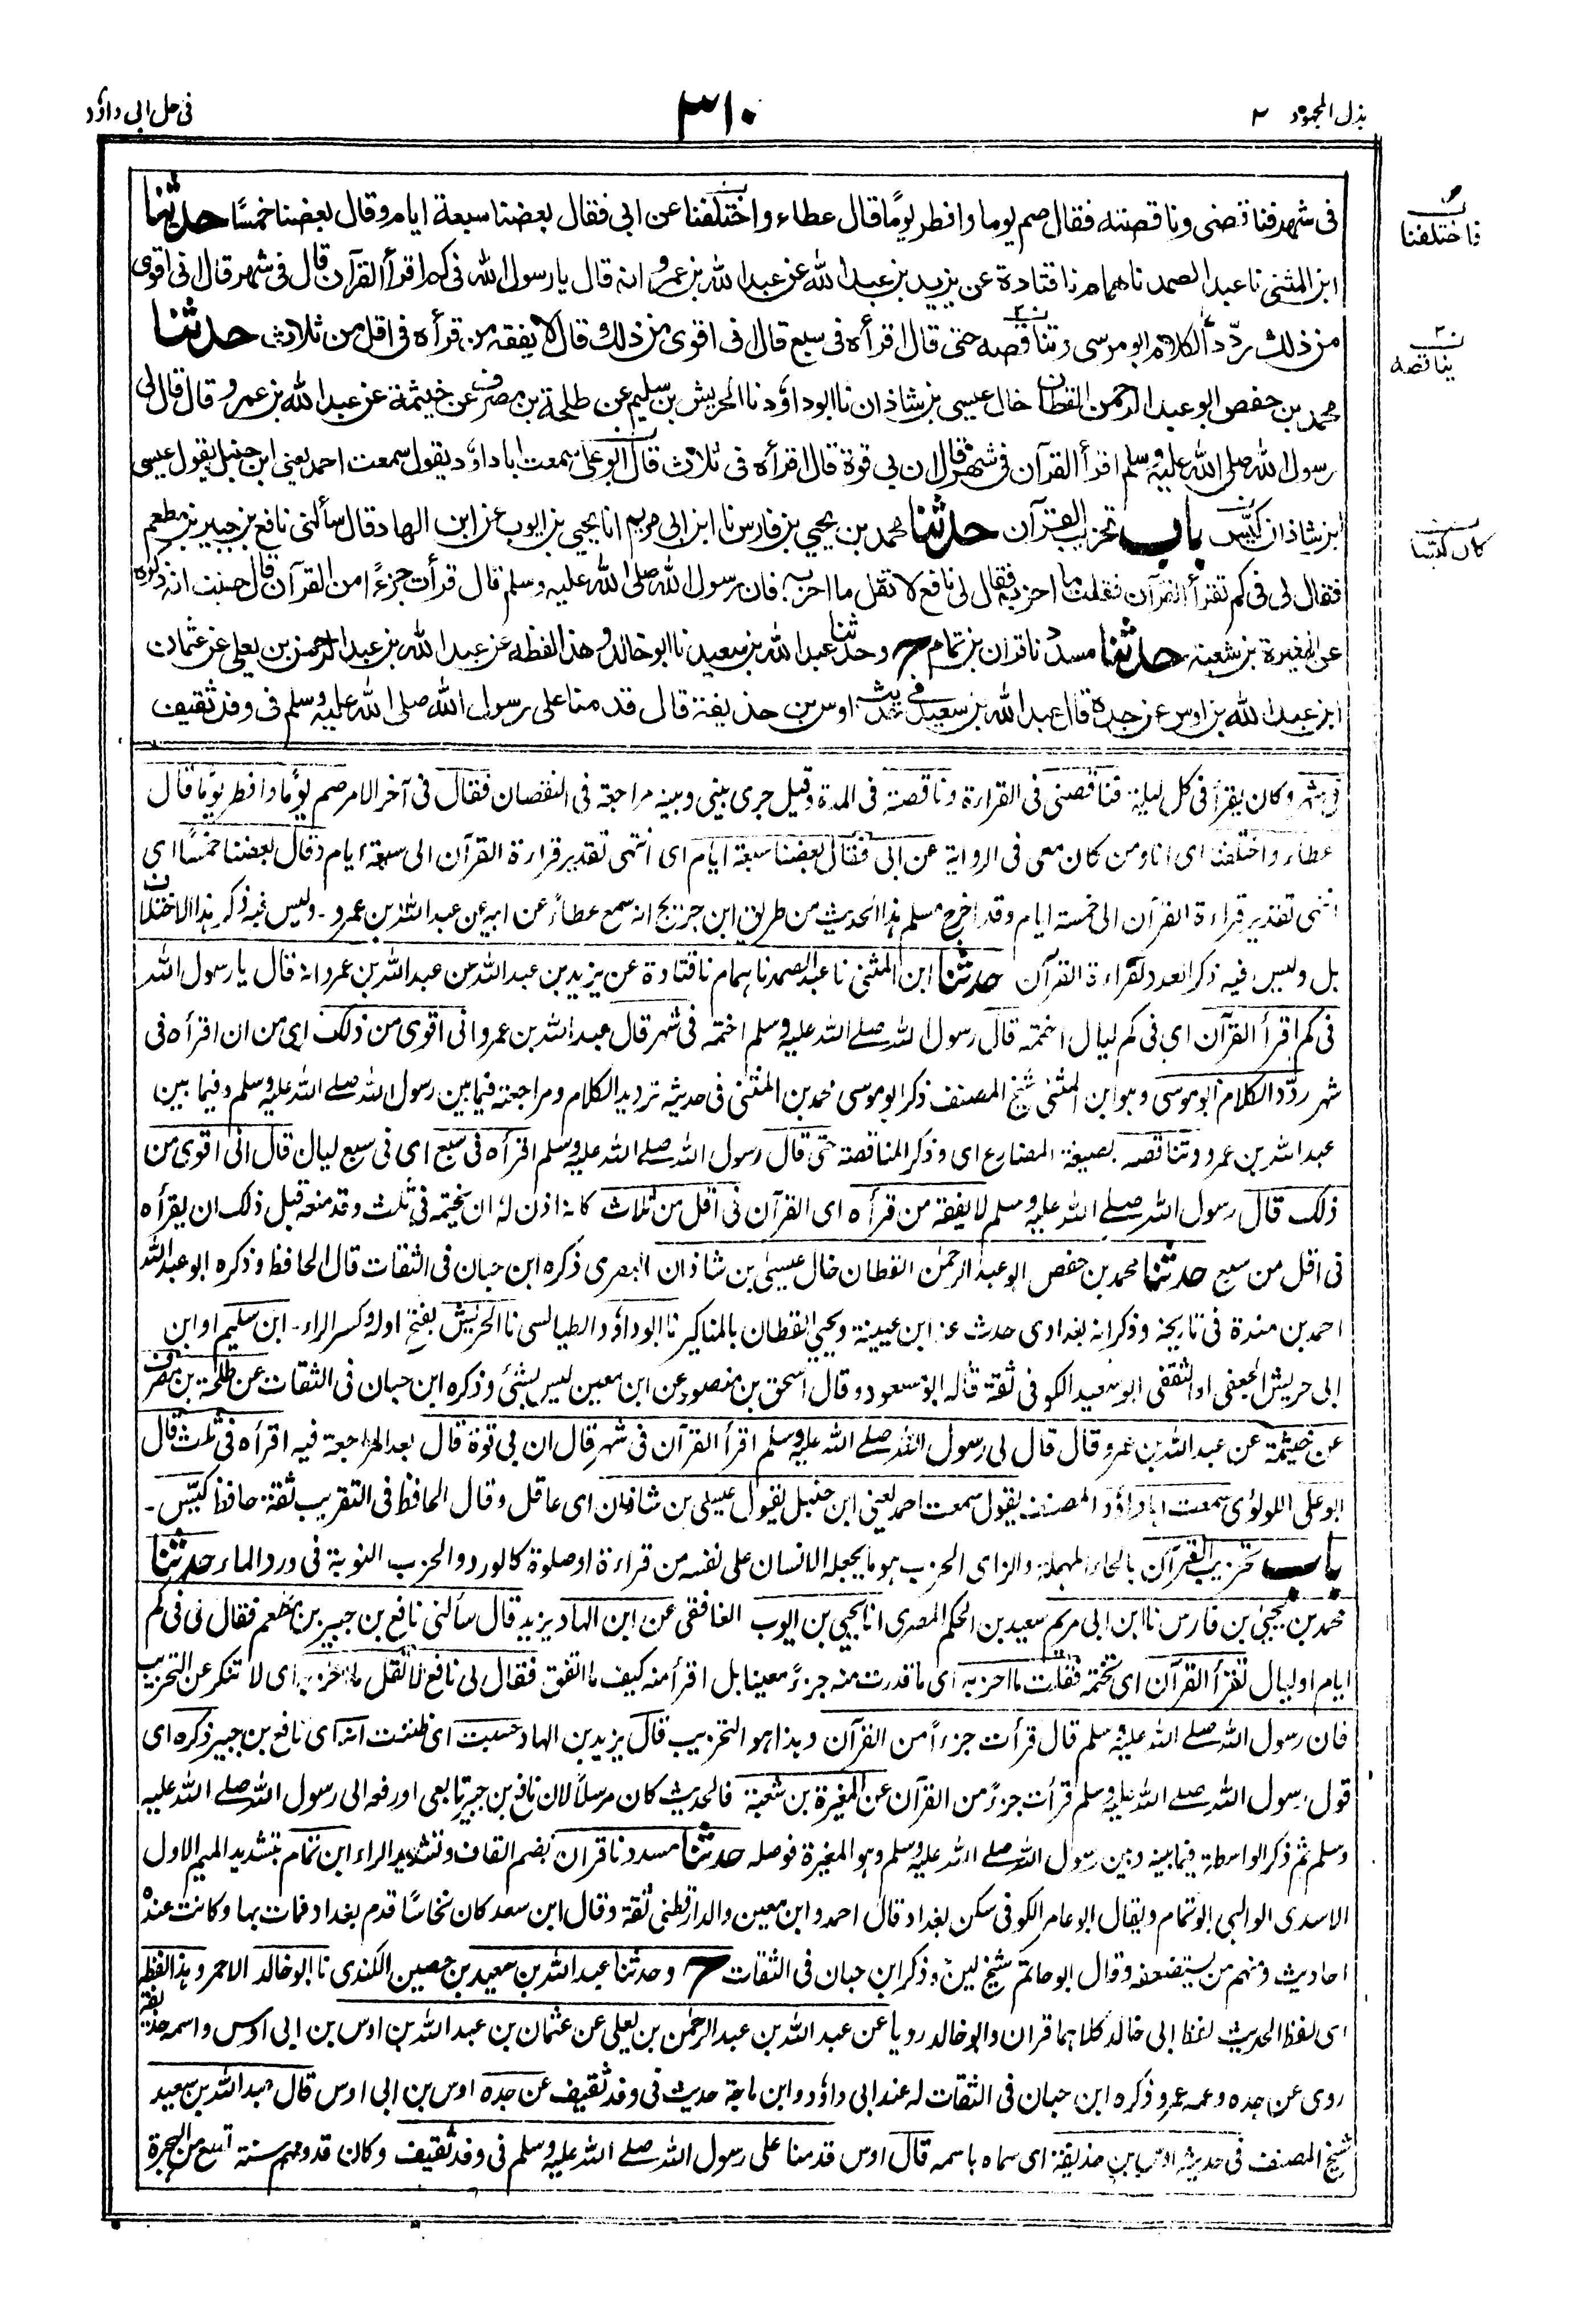 بذل المجهود ٢
٣١٠
في حل ابى داؤد
فى شهر فناقصنى وناقصته فقال صم يوما وافطر يومًا قال عطاء واختلفنا عن ابى فقال بعضنا سبعة ايام وقال بعضنا خمسًا حدثنا
ابن المثنى نا عبد الصمد نا همام نا قتادة عن يزيد بن عبد الله عن عبد الله بن عمرو انه قال يا رسول الله فى كم اقرأ القرآن قال فى شهر قال انى اقوى
من ذلك ردّد الكلام ابو موسى وتناقصه حتى قال اقرأه فى سبع قال انى اقوى من ذلك قال لا يفقه من قرأه فى اقل من ثلاث حدثنا
محمد بن حفص ابو عبد الرحمن القطان خال عيسى بن شاذان نا ابو داؤد نا الحريش بن سليم عن طلحة بن مصرف عن خيثمة عن عبد الله بن عمرو قال قال لى
رسول الله صلى الله عليه وسلم اقرأ القرآن فى شهر قال ان بى قوة قال اقرأه فى ثلاث قال ابو على سمعت ابا داؤد يقول سمعت احمد يعنى ابن حنبل يقول عيسى
ابن شاذان كيّس باب تحزيب القرآن حدثنا محمد بن يحيى بن فارس نا ابن ابى مريم انا يحيى بن ايوب عن ابن الهاد قال سألنى نافع بن جبير بن مطعم
فقال لى فى كم تقرأ القرآن فقلت ما احزبه فقال لى نافع لا تقل ما احزبه فان رسول الله صلى الله عليه وسلم قال قرأت جزءًا من القرآن قال حسبت انه ذكره
عن المغيرة بن شعبة حدثنا مسدد نا قران بن تمام ح وحدثنا عبد الله بن سعيد نا ابو خالد وهذا لفظه عن عبد الله بن عبد الرحمن بن يعلى عن عثمان
ابن عبد الله بن اوس عن جده قال عبد الله بن سعيد فى حديثه اوس بن حذيفة قال قدمنا على رسول الله صلى الله عليه وسلم فى وفد ثقيف
فاختلفنا
يناقصه
كان كيّسا
فى شهر وكان يقرأ فى كل ليلة فناقصنى فى القراءة وناقصته فى المدة وقيل جرى بينى وبينه مراجعة فى النقصان فقال فى آخر الامر صم يومًا وافطر يومًا قال
عطاء واختلفنا اى انا ومن كان معى فى الرواية عن ابى فقال بعضنا سبعة ايام اى انتهى تقدير قراءة القرآن الى سبعة ايام وقال بعضنا خمسًا اى
انتهى تقدير قراءة القرآن الى خمسة ايام وقد اخرج مسلم هذا الحديث من طريق ابن جريج انه سمع عطاءً عن ابيه عن عبد الله بن عمرو ـ وليس فيه ذكر هذا الاختلاف
بل وليس فيه ذكر العدد لقراءة القرآن حدثنا ابن المثنى نا عبد الصمد نا همام نا قتادة عن يزيد بن عبد الله عن عبد الله بن عمرو انه قال يا رسول الله
فى كم اقرأ القرآن اى فى كم ليال اختمه قال رسول الله صلى الله عليه وسلم اختمه فى شهر قال عبد الله بن عمرو انى اقوى من ذلك اى من ان اقرأه فى
شهر ردّد الكلام ابو موسى وهو ابن المثنى شيخ المصنف ذكر ابو موسى محمد بن المثنى فى حديثه ترديد الكلام ومراجعته فيما بين رسول الله صلى الله عليه وسلم وفيما بين
عبد الله بن عمرو وتناقصه بصيغة المضارع اى وذكر المناقصة حتى قال رسول الله صلى الله عليه وسلم اقرأه فى سبع اى فى سبع ليال قال انى اقوى من
ذلك قال رسول الله صلى الله عليه وسلم لا يفقه من قرأه اى القرآن فى اقل من ثلاث كانه اذن له ان يختمه فى ثلث وقد منعه قبل ذلك ان يقرأه
فى اقل من سبع حدثنا محمد بن حفص ابو عبد الرحمن القطان خال عيسى بن شاذان البصرى ذكره ابن حبان فى الثقات قال الحافظ وذكره ابو عبد الله
احمد بن مندة فى تاريخه وذكر انه بغدادى حدث عن ابن عيينة ويحيى القطان بالمناكير نا ابو داؤد الطيالسى نا الحريش بفتح اوله وكسر الراء ـ ابن سليم او ابن
ابى حريش الجعفى او الثقفى ابو سعيد الكوفى ثقة قاله ابو مسعود وقال اسحق بن منصور عن ابن معين ليس بشئ وذكره ابن حبان فى الثقات عن طلحة بن مصرف
عن خيثمة عن عبد الله بن عمرو قال قال لى رسول الله صلى الله عليه وسلم اقرأ القرآن فى شهر قال ان بى قوة قال بعد المراجعة فيه اقرأه فى ثلث قال
ابو على اللولؤى سمعت ابا داؤد المصنف يقول سمعت احمد يعنى ابن حنبل يقول عيسى بن شاذان اى عاقل وقال الحافظ فى التقريب ثقة حافظ كيّس ـ
باب تحزيب القرآن بالحاء المهملة والزاى الحزب هو ما يجعله الانسان على نفسه من قراءة او صلوة كالورد والحزب النوبة فى ورد الماء حدثنا
محمد بن يحيى بن فارس نا ابن ابى مريم سعيد بن الحكم المصرى انا يحيى بن ايوب الغافقى عن ابن الهاد يزيد قال سألنى نافع بن جبير بن مطعم فقال لى فى كم
ايام او ليال تقرأ القرآن اى تختمه فقلت ما احزبه اى ما قدرت منه جزءً معينا بل اقرأ منه كيف ما اتفق فقال لى نافع لا تقل ما احزبه اى لا تنكر عن التحزيب
فان رسول الله صلى الله عليه وسلم قال قرأت جزءاً من القرآن وهذا هو التحزيب قال يزيد بن الهاد حسبت اى ظننت انه اى نافع بن جبير ذكره اى
قول رسول الله صلى الله عليه وسلم قرأت جزءً من القرآن عن المغيرة بن شعبة فالحديث كان مرسلاً لان نافع بن جبير تابعى اورفعه الى رسول الله صلى الله عليه
وسلم ثم ذكر الواسطة فيما بينه وبين رسول الله صلى الله عليه وسلم وهو المغيرة فوصله حدثنا مسدد نا قران بضم القاف وتشديد الراء ابن تمام بتشديد الميم الاول
الاسدى الوالبى ابو تمام ويقال ابو عامر الكوفى سكن بغداد قال احمد وابن معين والدارقطنى ثقة وقال ابن سعد كان نخاسًا قدم بغداد فمات بها وكانت عنده
احاديث ومنهم من يستضعفه وقال ابو حاتم شيخ لين وذكر ابن حبان فى الثقات ح وحدثنا عبد الله بن سعيد بن حصين الكندى نا ابو خالد الاحمر وهذا لفظه
اى لفظ الحديث لفظ ابى خالد كلاهما قران وابو خالد رويا عن عبد الله بن عبد الرحمن بن يعلى عن عثمان بن عبد الله بن اوس بن ابى اوس واسمه حذيفة
روى عن جده وعمه عمرو ذكره ابن حبان فى الثقات له عند ابى داؤد وابن ماجة حديث فى وفد ثقيف عن جده اوس بن ابى اوس قال عبد الله بن سعيد
شيخ المصنف فى حديثه اوس بن حذيفة اى سماه باسمه قال اوس قدمنا على رسول الله صلى الله عليه وسلم فى وفد ثقيف وكان قدومهم سنة تسع من الهجرة